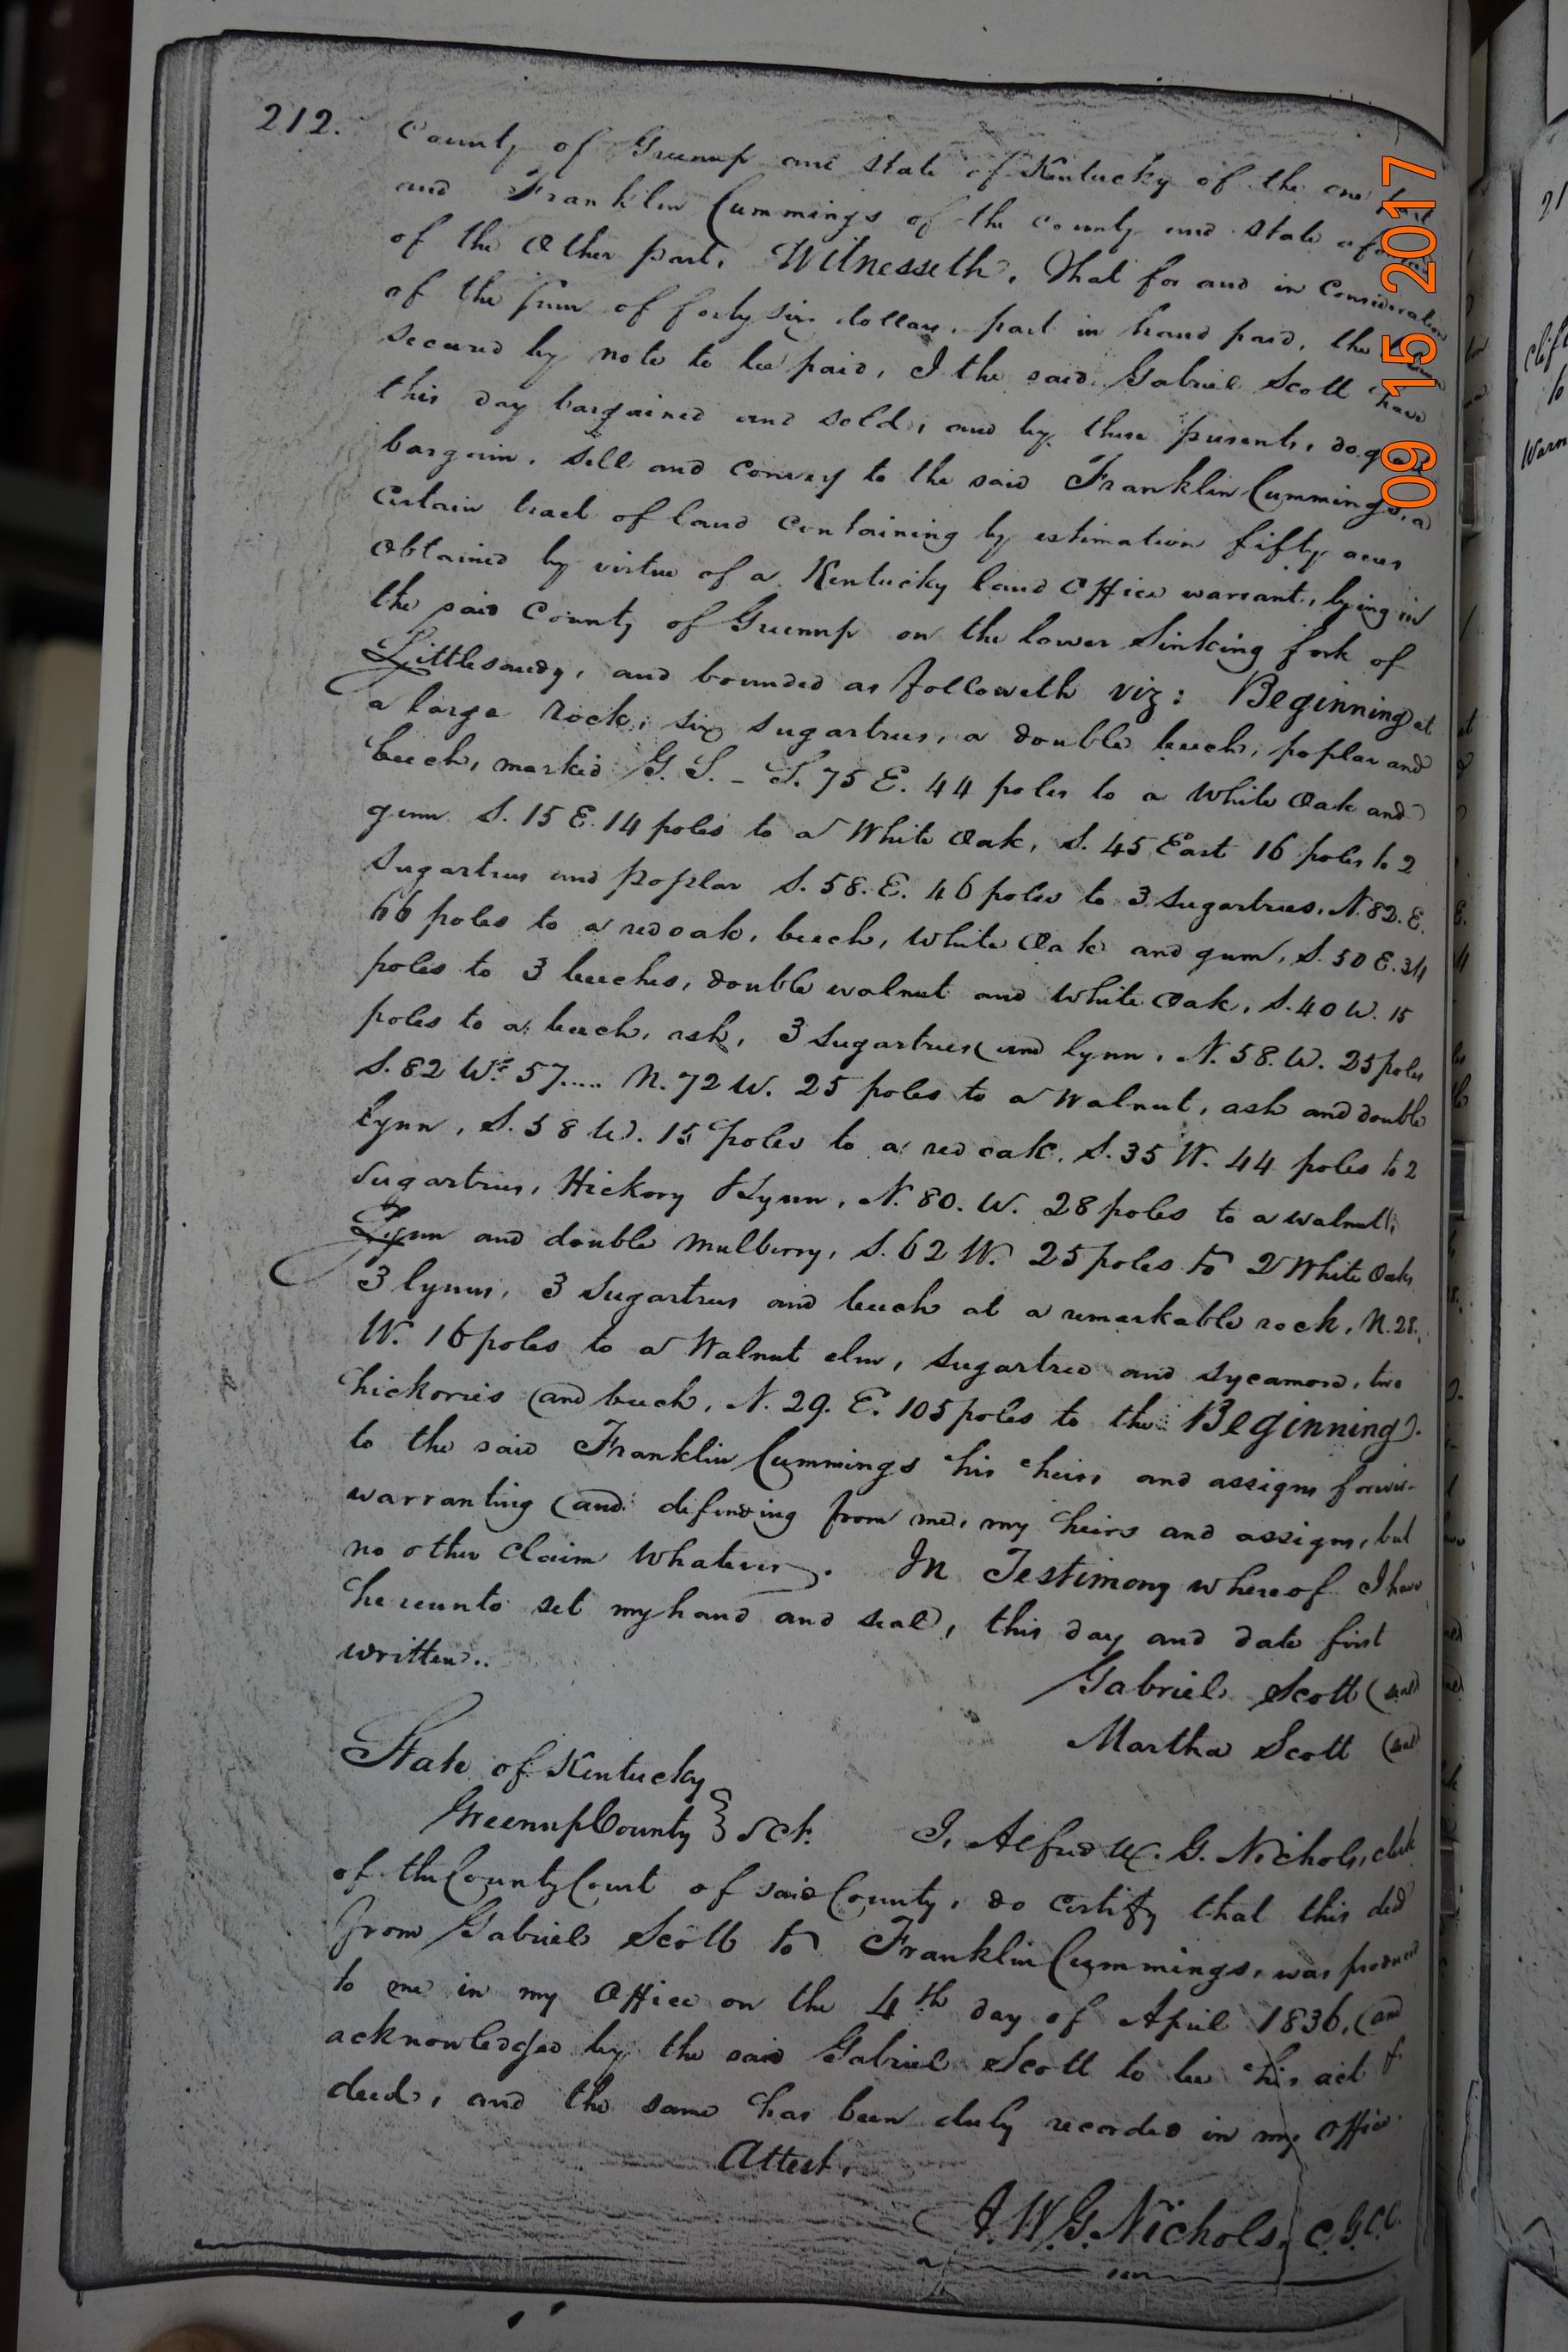 212. County of Greenup and state of Kentucky of the one part
and Franklin Cummings of the county and state
of the Other part, Witnesseth, that for and in Consideration
of the sum of forty six dollars, part in hand paid, the
secured by note to be paid, I the said Gabriel Scott have
this day bargained and sold, and by these presents, do
bargain, sell and convey to the said Franklin Cummings, a
certain tract of land containing by estimation fifty acres
Obtained by virtue of a Kentucky land Office warrant, lying in
the said County of Greenup on the lower Sinking fork of
Littlesandy, and bounded as followeth viz: Beginning at
a large Rock, six sugartrees, a double beech, poplar and
beech, marked G. S. - S. 75 E. 44 poles to a White Oak and
gum S. 15 E. 14 poles to a White Oak, S. 45 East 16 poles to 2
Sugartrees and poplar S. 58. E. 46 poles to 3 Sugartrees, N. 82. E.
66 poles to a redoak, beech, White Oak and gum, S. 50 E. 34
poles to 3 beeches, double walnut and White Oak, S. 40 W. 15
poles to a beech, ash, 3 Sugartrees and lynn, N. 58. W. 25 poles
S. 82 W. 57.... N. 72 W. 25 poles to a Walnut, ash and double
lynn, S. 58 W. 15 poles to a red oak, S. 35 W. 44 poles to 2
Sugartrees, Hickory & Lynn, N. 80. W. 28 poles to a walnut,
Lynn and double mulberry, S. 62 W. 25 poles to 2 White Oaks
3 lynns, 3 Sugartrees and beech at a remarkable rock, N. 28.
W. 16 poles to a Walnut elm, sugartree and sycamore, two
hickories and beech, N. 29. E. 105 poles to the Beginning.
to the said Franklin Cummings his heirs and assigns forever.
warranting and defending from me, my heirs and assigns, but
no other claim whatever. In Testimony whereof I have
hereunto set my hand and seal, this day and date first
written..
Gabriel Scott (seal)
Martha Scott (seal)
State of Kentucky
Greenup County } Sct. I, Alfred W. G. Nichols, clerk
of the County Court of said County, do certify that this deed
from Gabriel Scott to Franklin Cummings, was produced
to me in my Office on the 4th day of April 1836, and
acknowledged by the said Gabriel Scott to be his act &
deed, and the same has been duly recorded in my Office.
Attest,
A. W. G. Nichols, C.G.C.C.
09 15 2017